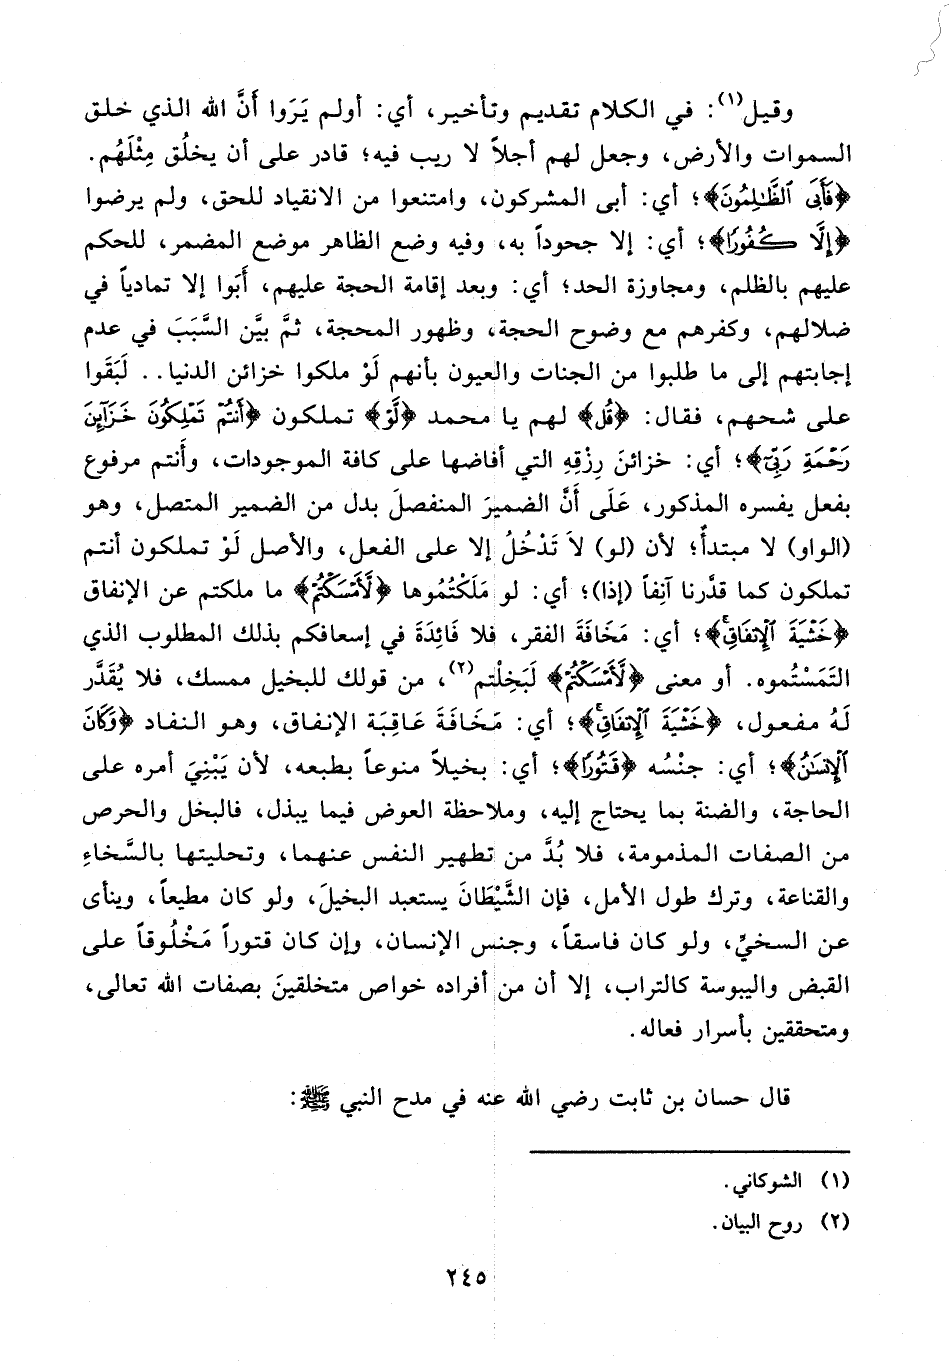 وقيل(١): في الكلام تقديم وتأخير، أي: أولم يَرَوا أَنَّ الله الذي خلق
السموات والأرض، وجعل لهم أجلاً لا ريب فيه؛ قادر على أن يخلُق مِثْلَهُم.
﴿فَأَبَى ٱلظَّٰلِمُونَ﴾؛ أي: أبى المشركون، وامتنعوا من الانقياد للحق، ولم يرضوا
﴿إِلَّا كُفُورًا﴾؛ أي: إلا جحوداً به، وفيه وضع الظاهر موضع المضمر، للحكم
عليهم بالظلم، ومجاوزة الحد؛ أي: وبعد إقامة الحجة عليهم، أَبَوا إلا تمادياً في
ضلالهم، وكفرهم مع وضوح الحجة، وظهور المحجة، ثمَّ بيَّن السَّبَبَ في عدم
إجابتهم إلى ما طلبوا من الجنات والعيون بأنهم لَوْ ملكوا خزائن الدنيا.. لَبَقَوا
على شحهم، فقال: ﴿قُل﴾ لهم يا محمد ﴿لَّوْ﴾ تملكون ﴿أَنتُمْ تَمْلِكُونَ خَزَآئِنَ
رَحْمَةِ رَبِّىٓ﴾؛ أي: خزائنَ رِزْقِهِ التي أفاضها على كافة الموجودات، وأنتم مرفوع
بفعل يفسره المذكور، عَلَى أَنَّ الضميرَ المنفصلَ بدل من الضمير المتصل، وهو
(الواو) لا مبتدأٌ؛ لأن (لو) لاَ تَدْخُلُ إلا على الفعل، والأصل لَوْ تملكون أنتم
تملكون كما قدَّرنا آنِفاً (إذا)؛ أي: لو مَلَكْتُمُوها ﴿لَّأَمْسَكْتُمْ﴾ ما ملكتم عن الإنفاق
﴿خَشْيَةَ ٱلْإِنفَاقِ﴾؛ أي: مَخَافَةَ الفقر، فلا فَائِدَةَ في إسعافكم بذلك المطلوب الذي
التَمَسْتُموه. أو معنى ﴿لَّأَمْسَكْتُمْ﴾ لَبَخِلْتم(٢)، من قولك للبخيل ممسك، فلا يُقَدَّر
لَهُ مفعول، ﴿خَشْيَةَ ٱلْإِنفَاقِ﴾؛ أي: مَخَافَةَ عَاقِبَة الإنفاق، وهو النفاد ﴿وَكَانَ
ٱلْإِنسَٰنُ﴾؛ أي: جنْسُه ﴿قَتُورًا﴾؛ أي: بخيلاً منوعاً بطبعه، لأن يَبْنِيَ أمره على
الحاجة، والضنة بما يحتاج إليه، وملاحظة العوض فيما يبذل، فالبخل والحرص
من الصفات المذمومة، فلا بُدَّ من تطهير النفس عنهما، وتحليتها بالسَّخاءِ
والقناعة، وترك طول الأمل، فإن الشَّيْطَانَ يستعبد البخيلَ، ولو كان مطيعاً، وينأى
عن السخيِّ، ولو كان فاسقاً، وجنس الإنسان، وإن كان قتوراً مَخْلُوقاً على
القبض واليبوسة كالتراب، إلا أن من أفراده خواص متخلقينَ بصفات الله تعالى،
ومتحققين بأسرار فعاله.
قال حسان بن ثابت رضي الله عنه في مدح النبي ﷺ:
(١) الشوكاني.
(٢) روح البيان.
٢٤٥